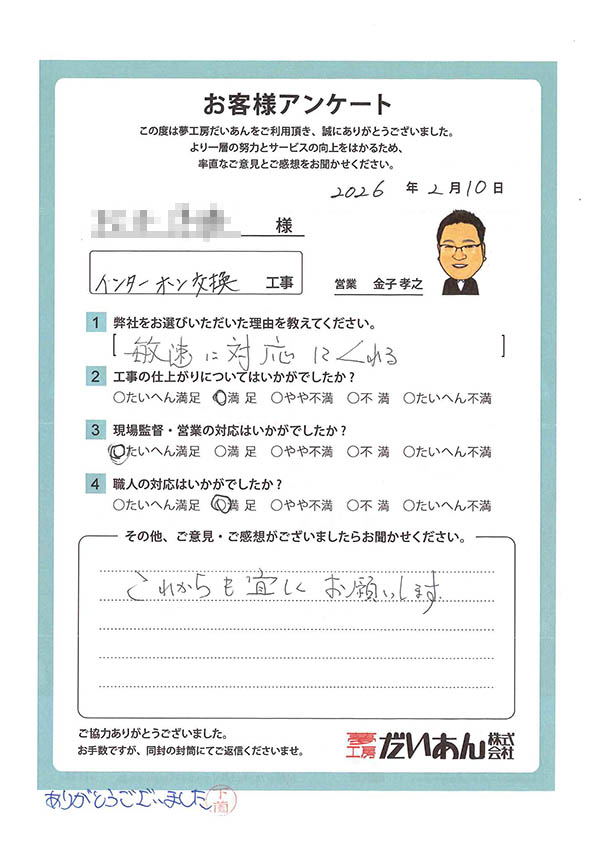 お客様アンケート
この度は夢工房だいあんをご利用頂き、誠にありがとうございました。
より一層の努力とサービスの向上をはかるため、
率直なご意見とご感想をお聞かせください。
2026 年 2月10日
様
インターホン交換 工事
営業 金子 孝之
1 弊社をお選びいただいた理由を教えてください。
[ 敏速に対応にくれる ]
2 工事の仕上がりについてはいかがでしたか?
○たいへん満足 ○満 足 ○やや不満 ○不 満 ○たいへん不満
3 現場監督・営業の対応はいかがでしたか?
○たいへん満足 ○満 足 ○やや不満 ○不 満 ○たいへん不満
4 職人の対応はいかがでしたか?
○たいへん満足 ○満 足 ○やや不満 ○不 満 ○たいへん不満
その他、ご意見・ご感想がございましたらお聞かせください。
これからも宜しくお願いします
ご協力ありがとうございました。
お手数ですが、同封の封筒にてご返信くださいませ。
夢工房 だいあん 株式会社
ありがとうございました 下薗